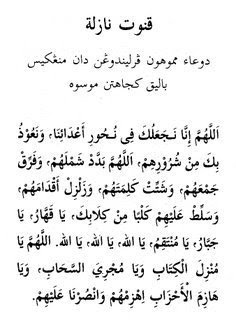 قنوت نازلة
دوعاء مموهون ڤرليندوڠن دان منڠکيس
باليق کجاهتن موسوه
اَللّٰهُمَّ إِنَّا نَجْعَلُكَ فِي نُحُورِ أَعْدَائِنَا، وَنَعُوْذُ
بِكَ مِنْ شُرُوْرِهِمْ، اَللّٰهُمَّ بَدِّدْ شَمْلَهُمْ، وَفَرِّقْ
جَمْعَهُمْ، وَشَتِّتْ كَلِمَتَهُمْ، وَزَلْزِلْ أَقْدَامَهُمْ،
وَسَلِّطْ عَلَيْهِمْ كَلْبًا مِنْ كِلَابِكَ، يَا قَهَّارُ، يَا
جَبَّارُ، يَا مُنْتَقِمُ، يَا الله، يَا الله، يَا الله. اَللّٰهُمَّ يَا
مُنْزِلَ الْكِتَابِ وَيَا مُجْرِيَ السَّحَابِ، وَيَا
هَازِمَ الْأَحْزَابِ اِهْزِمْهُمْ وَانْصُرْنَا عَلَيْهِمْ.